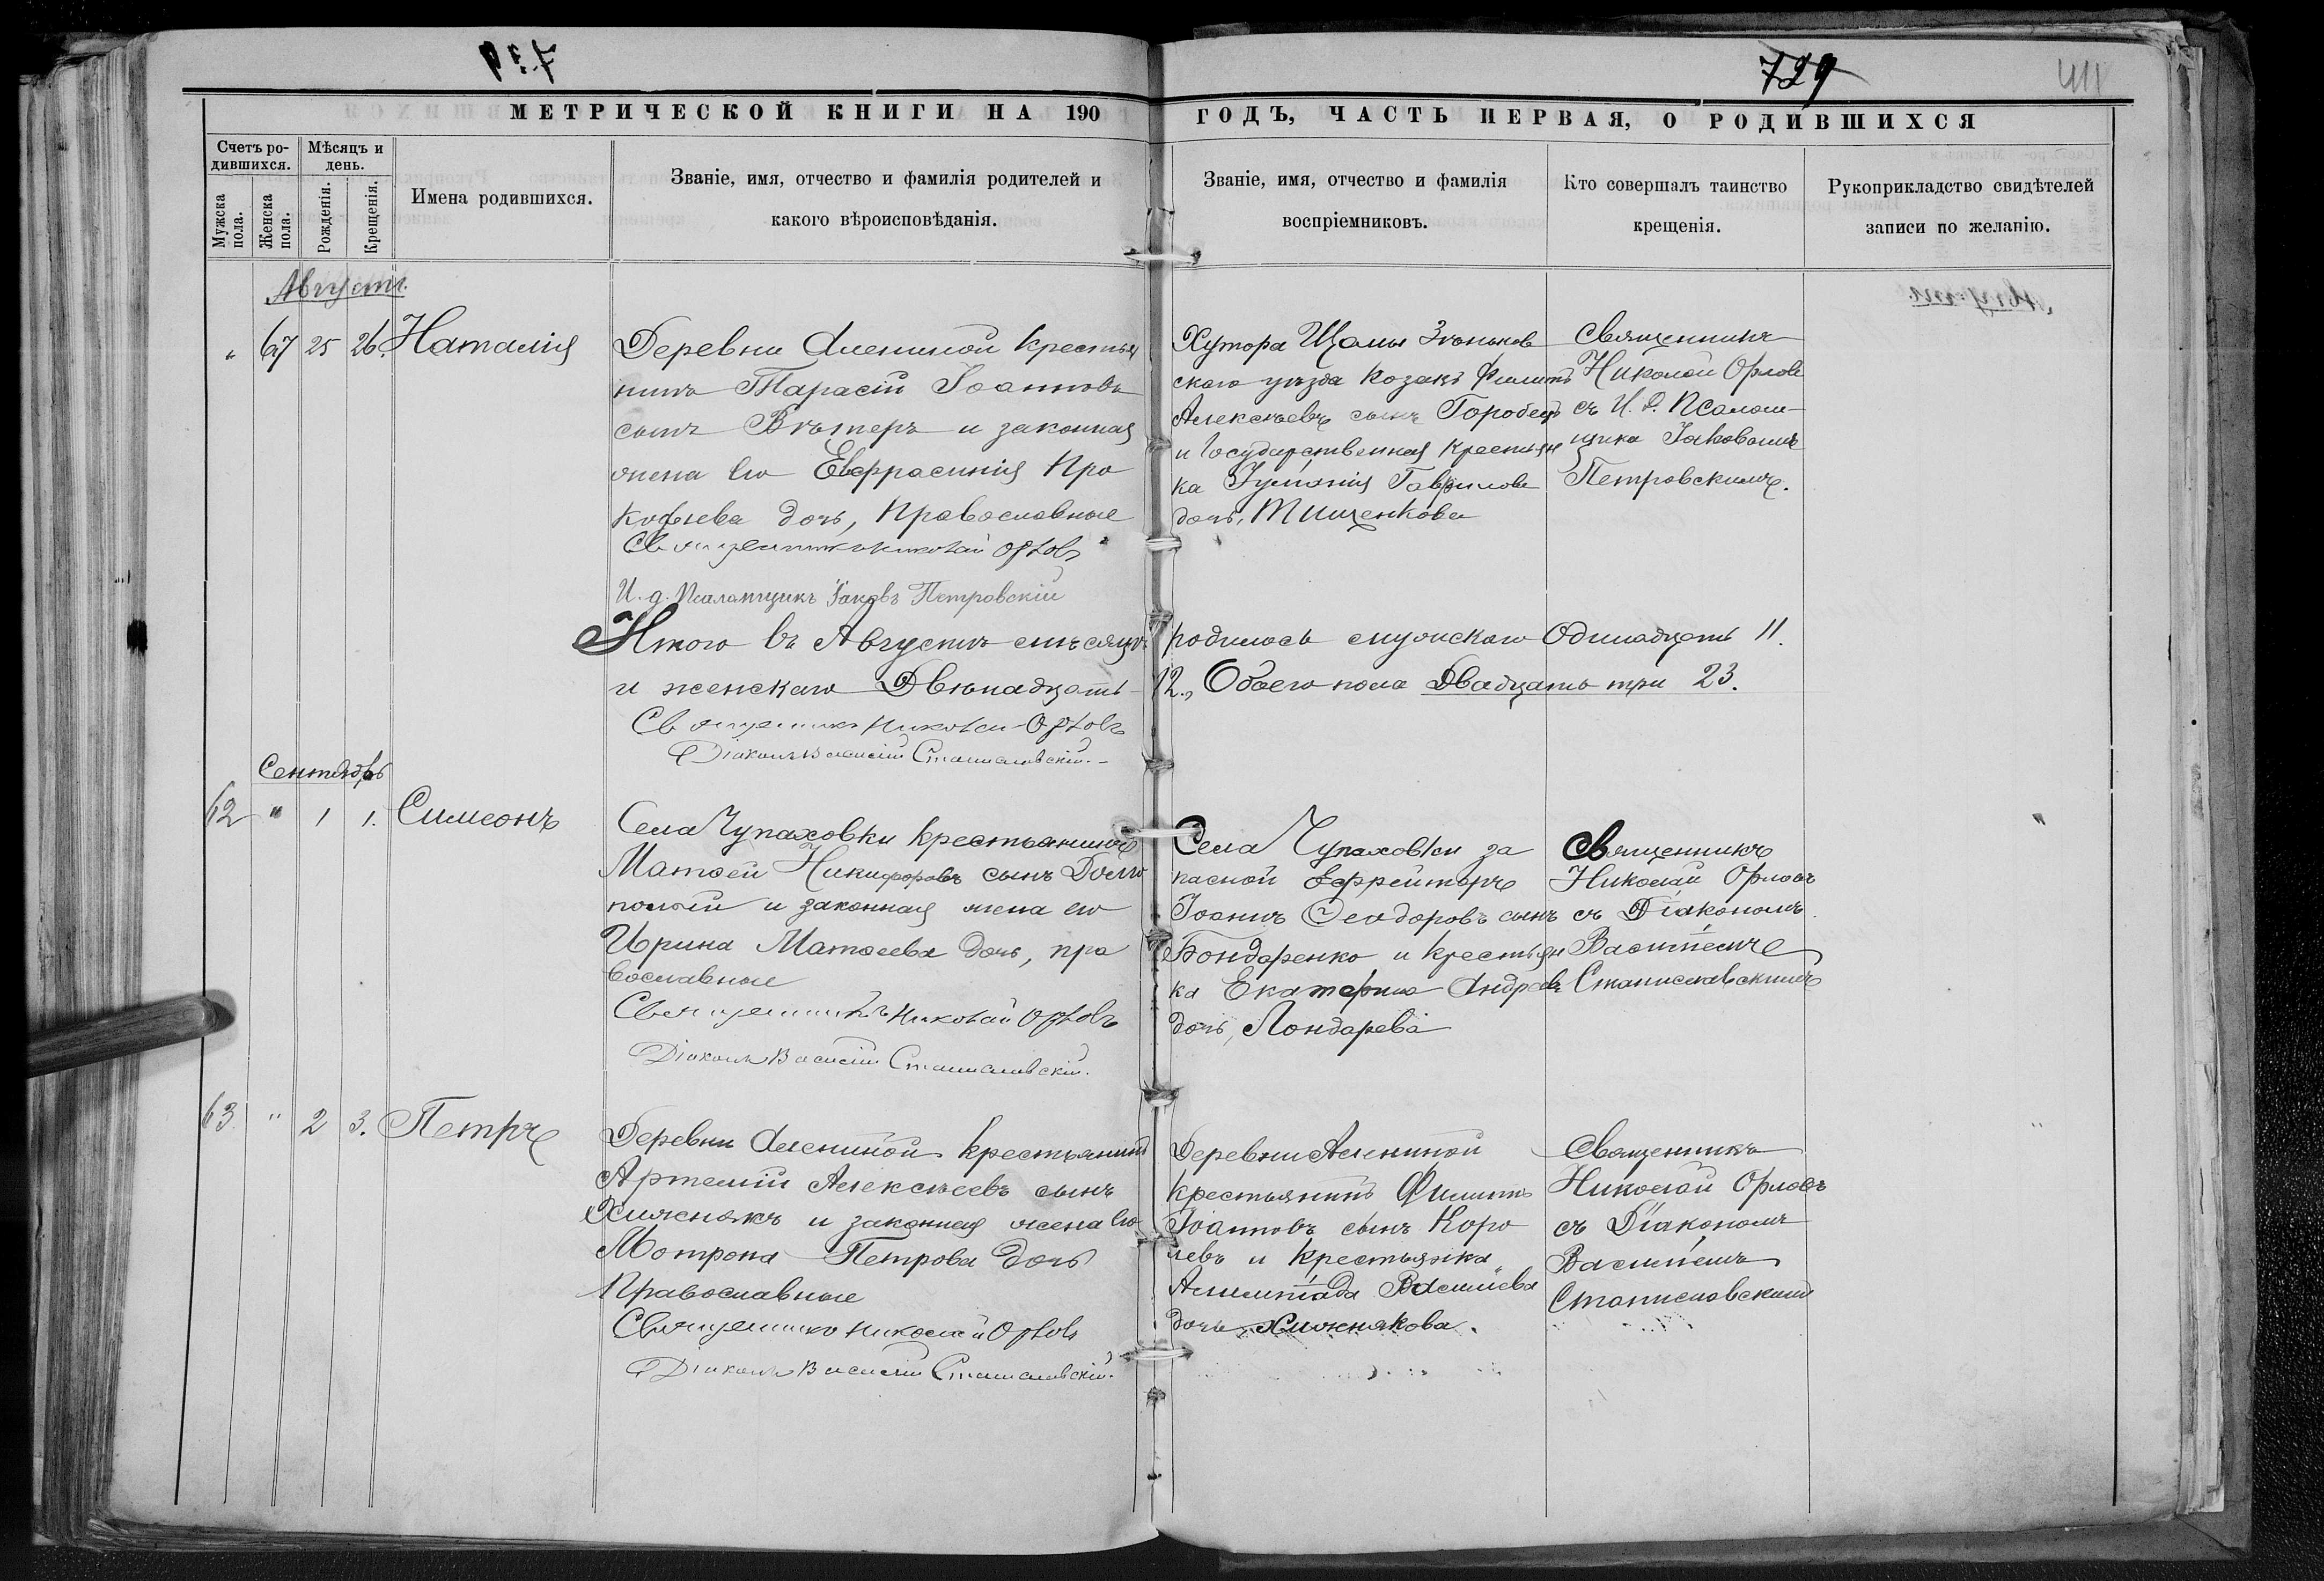 729
411
МЕТРИЧЕСКОЙ КНИГИ НА 190
ГОДЪ, ЧАСТЬ ПЕРВАЯ, О РОДИВШИХСЯ
Счетъ ро-
дившихся.
Мѣсяцъ и
день.
Мужска
пола.
Женска
пола.
Рожденія.
Крещенія.
Имена родившихся.
Званіе, имя, отчество и фамилія родителей и
какого вѣроисповѣданія.
Званіе, имя, отчество и фамилія
воспріемниковъ.
Кто совершалъ таинство
крещенія.
Рукоприкладство свидѣтелей
записи по желанію.
Августъ.
" 67 25 26. Наталія
Деревни Алениной крестья
нинъ Тарасій Іоанновъ
сынъ Вѣтеръ и законная
жена его Евфрасинія Про
кофьева дочь, Православные
Священникъ Николай Орловъ
И. д. Псаломщикъ Іаковъ Петровскій
Хутора Зѣньков
скаго уѣзда козакъ Филиппъ
Алексѣевъ сынъ Горобецъ
и Государственная крестьян
ка Гавриилова
дочь, Тищенкова
Священникъ
Николай Орловъ
съ И. д. Псалом-
щика Іаковомъ
Петровскимъ.
Итого въ Августѣ мѣсяцѣ родилось мужскаго Одинадцать 11.
и женскаго Двѣнадцать 12., Обоего пола Двадцать три 23.
Священникъ Николай Орловъ
Діаконъ Василій Станиславскій.
Сентябрь
62 " 1 1. Симеонъ
Села Чупаховки крестьянинъ
Матѳей Никифоровъ сынъ Долго
полый и законная жена его
Ирина Матѳеева дочь, пра
вославные
Священникъ Николай Орловъ
Діаконъ Василій Станиславскій.
Села Чупаховки за
пасной Ефрейторъ
Іоаннъ Ѳеодоровъ сынъ
Бондаренко и крестьян
ка Екатерина Андреева
дочь, Лондарева
Священникъ
Николай Орловъ
съ Діакономъ
Василіемъ
Станиславскимъ
"
63 " 2 3. Петръ
Деревни Алениной крестьянинъ
Артемій Алексѣевъ сынъ
Хижнякъ и законная жена его
Мотрона Петрова дочь
Православные
Священникъ Николай Орловъ
Діаконъ Василій Станиславскій.
Деревни Алениной
крестьянинъ Филиппъ
Іоанновъ сынъ Коро
левъ и крестьянка
Василіева
дочь, Хижнякова.
Священникъ
Николай Орловъ
съ Діакономъ
Василіемъ
Станиславскимъ
"